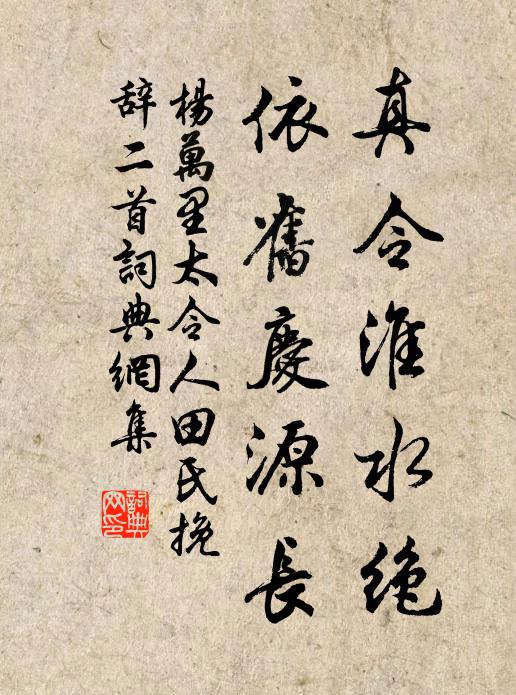 真令淮水绝
依舊慶源長
楊萬里太令人田氏挽
辞二首詞典網集
詞典网印